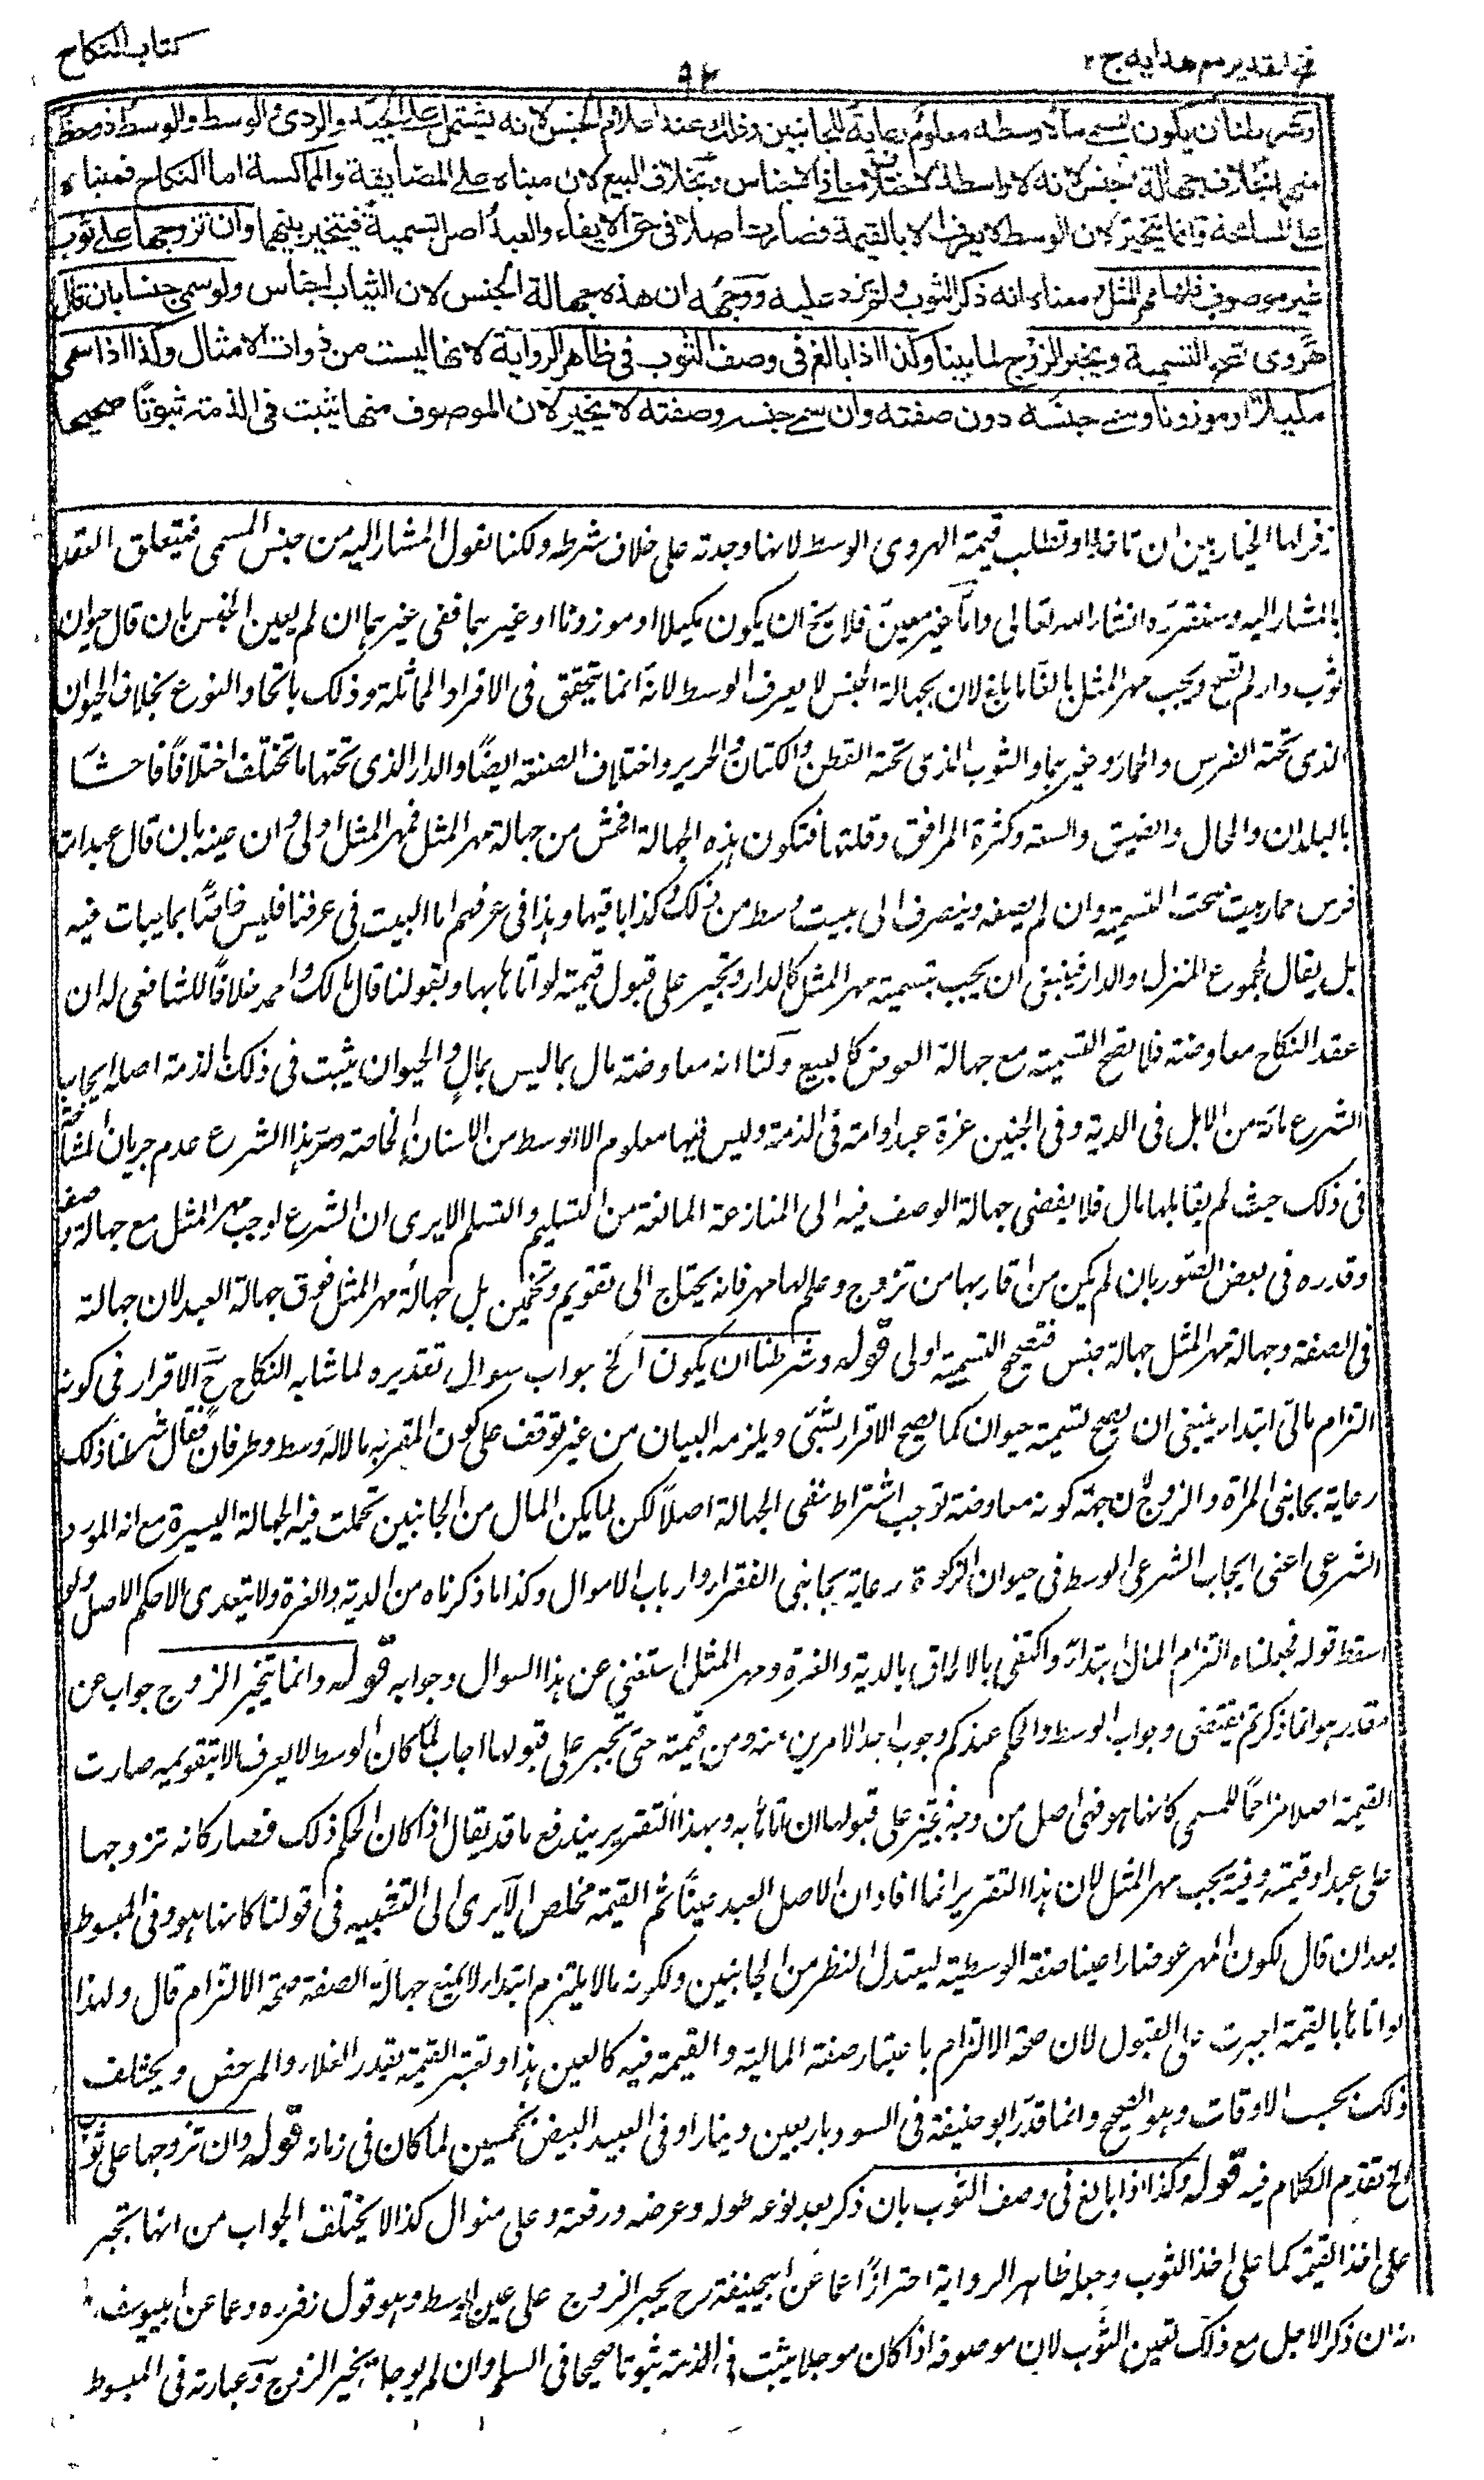 فتح القدير مع هدايه ج ٢
٩٢
كتاب النكاح
وشرطنا ان يكون المسمى مالا وسطه معلوم رعاية للجانبين وذلك عند اعلام الجنس لانه يشتمل على الجيد والردئ والوسط والوسط ذوحظ
منهما بخلاف جهالة الجنس لانه لا واسطة لاختلاف معانى الاجناس وبخلاف البيع لان مبناه على المضايقة والمماكسة اما النكاح فمبناه
على المسامحة وانما يتخير لان الوسط لا يعرف الا بالقيمة فصارت اصلا فى حق الايفاء والعبد اصل التسمية فيتخير بينهما وان تزوجها على ثوب
غير موصوف فلها مهر المثل ومعناه انه ذكر الثوب ولم يزد عليه ووجهه ان هذه جهالة الجنس لان الثياب اجناس ولو سمى جنسا بان قال
هروى تصح التسمية ويخير الزوج لما بينا وكذا اذا بالغ فى وصف الثوب فى ظاهر الرواية لانها ليست من ذوات الامثال وكذا اذا سمى
مكيلا او موزونا وسمى جنسه دون صفته وان سمى جنسه وصفته لا يخير لان الموصوف منهما يثبت فى الذمة ثبوتا صحيحا
زفر لها الخيار بين ان تاخذها وتطلب قيمة الهروى الوسط لانها وجدته على خلاف شرطه ولكنا نقول المشار اليه من جنس المسمى فيتعلق العقد
بالمشار اليه وسنقرره انشاء الله تعالى واما غير معين فلا يخ ان يكون مكيلا او موزونا او غيرهما ففى غيرهما ان لم يعين الجنس بان قال حيوان
ثوب دار لم تصح ويجب مهر المثل بالغا ما بلغ لان بجهالة الجنس لا يعرف الوسط لانه انما يتحقق فى الافراد المماثلة وذلك باتحاد النوع بخلاف الحيوان
الذى تحته الفرس والحمار وغيرهما والثوب الذى تحته القطن والكتان والحرير واختلاف الصنعة ايضا والدار الذى تحتها ما تختلف اختلافا فاحشا
بالبلدان والمحال والضيق والسعة وكثرة المرافق وقلتها فتكون هذه الجهالة افحش من جهالة مهر المثل فمهر المثل اولى وان عينه بان قال عبد امة
فرس حمار بيت صحت التسمية وان لم يصفه وينصرف الى بيت وسط من ذلك وكذا باقيها وهذا فى عرفهم اما البيت فى عرفنا فليس خاصا بما يبات فيه
بل يقال لمجموع المنزل والدار فينبغى ان يجب بتسميته مهر المثل كالدار وتجبر على قبول قيمته لو اتاها بها وبقولنا قال مالك واحمد خلافا للشافعى له ان
عقد النكاح معاوضة فلا تصح التسمية مع جهالة العوض كالبيع ولنا انه معاوضة مال بما ليس بمال والحيوان يثبت فى ذلك بالذمة اصله ايجاب
الشرع مائة من الابل فى الدية وفى الجنين غرة عبد او امة فى الذمة وليس فيها معلوم الا الوسط من الاسنان الخاصة وسر هذا الشرع عدم جريان المشاحة
فى ذلك حيث لم يقابلها مال فلا يفضى جهالة الوصف فيه الى المنازعة المانعة من التسليم والتسلم الا يرى ان الشرع اوجب مهر المثل مع جهالة وصفه
وقدره فى بعض الصور بان لم يكن من اقاربها من تزوج وعلم لها مهر فانه يحتاج الى تقويم وتخمين بل جهالة مهر المثل فوق جهالة العبد لان جهالته
فى الصفة وجهالة مهر المثل جهالة جنس فتصحيح التسمية اولى قوله وشرطنا ان يكون الخ جواب سوال تقديره لما شابه النكاح ح الاقرار فى كونه
التزام مالى ابتداء ينبغى ان يصح تسمية حيوان كما يصح الاقرار بشئ ويلزمه البيان من غير توقف على كون المقر به مالا له وسط وطرفان فقال شرطنا ذلك
رعاية بجانبى المراة والزوج لان جهة كونه معاوضة توجب اشتراط نفى الجهالة اصلا لكن لما يكن المال من الجانبين تحملت فيه الجهالة اليسيرة مع انه المورد
الشرعى اعنى ايجاب الشرعى الوسط فى حيوان الزكوة رعاية بجانبى الفقراء وارباب الاموال وكذا ما ذكرناه من الدية والغرة ولا يتعدى الا حكم الاصل ولو
اسقط قوله فجعلناه التزام المال ابتداء واكتفى بالالحاق بالدية والغرة ومهر المثل استغنى عن هذا السوال وجوابه قوله وانما يتخير الزوج جواب عن
مقدر هو انما ذكرتم يقتضى وجوب الوسط والحكم عندكم وجوب احد الامرين منه ومن قيمته حتى تجبر على قبولها اجاب لما كان الوسط لا يعرف الا بتقويمه صارت
القيمة اصلا مزاحما للمسمى كانها هو فهى اصل من وجه فتجبر على قبولها ان اتاها به وبهذا التقرير يندفع ما قد يقال اذا كان الحكم ذلك فصار كانه تزوجها
على عبد او قيمته وفيه يجب مهر المثل لان هذا التقرير انما افاد ان الاصل العبد عينا ثم القيمة مخلص الا يرى الى التشبيه فى قولنا كانها هو وفى المبسوط
بعد ان قال لكون المهر عوضا راعينا صفة الوسطية ليعتدل النظر من الجانبين ولكونه مالا يلتزم ابتداء لا يمنع جهالة الصفة صحة الالتزام قال ولهذا
لو اتاها بالقيمة اجبرت على القبول لان صحة الالتزام باعتبار صفة المالية والقيمة فيه كالعين هذا وتعتبر القيمة بقدر الغلاء والرخص ويختلف
ذلك بحسب الاوقات وهو الصحيح وانما قدر ابو حنيفة فى السود باربعين دينارا وفى العبيد البيض بخمسين لما كان فى زمانه قوله وان تزوجها على ثوب
الخ تقدم الكلام فيه قوله وكذا اذا بالغ فى وصف الثوب بان ذكر بعد نوعه طوله وعرضه ورقعته وعلى منوال كذا لا يختلف الجواب من انها تجبر
على اخذ القيمة كما على اخذ الثوب وجعله ظاهر الرواية احترازا عما عن ابيحنيفة رح يجبر الزوج على عين الوسط وهو قول زفر ره وعما عن ابيوسف
انه ان ذكر الاجل مع ذلك تعين الثوب لان موصوفه اذا كان موجلا يثبت فى الذمة ثبوتا صحيحا فى السلم وان لم يوجل يخير الزوج وعبارته فى المبسوط